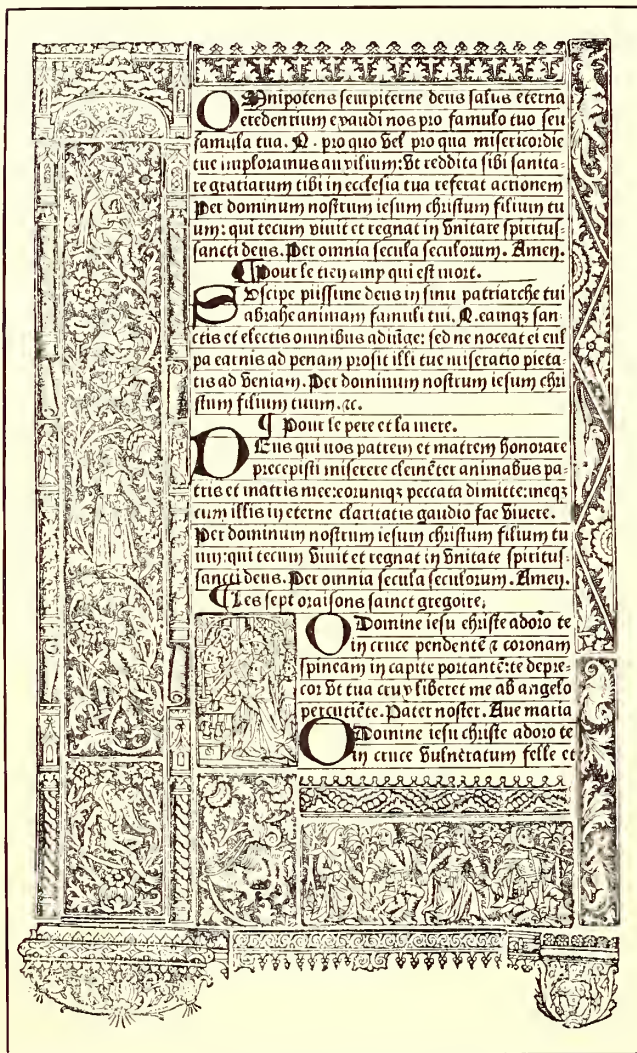 OMnipotens sempiterne deus salus eterna
credentium exaudi nos pro famulo tuo seu
famula tua. N. pro quo vel pro qua misericordie
tue imploramus auxilium: Vt reddita sibi sanita-
te gratiarum tibi in ecclesia tua referat actionem
Per dominum nostrum iesum christum filium tu
um: qui tecum viuit et regnat in vnitate spiritus
sancti deus. Per omnia secula seculorum. Amen.
¶ Pour le tien amy qui est mort.
SVscipe piissime deus in sinu patriarche tui
abrahe animam famuli tui. N. eamqꝫ san-
ctis et electis omnibus adiũge: sed ne noceat ei cul
pa carnis ad penam prosit illi tue miseratio pieta-
tis ad veniam. Per dominum nostrum iesum chri
stum filium tuum. ⁊c.
¶ Pour le pere et la mere.
DEus qui nos patrem et matrem honorare
precepisti miserere clemẽter animabus pa-
tris et matris mee: eorumqꝫ peccata dimitte: meqꝫ
cum illis in eterne claritatis gaudio fac viuere.
Per dominum nostrum iesum christum filium tu
um: qui tecum viuit et regnat in vnitate spiritus
sancti deus. Per omnia secula seculorum. Amen.
¶ Les sept oraisons sainct gregoire.
O Domine iesu christe adoro te
in cruce pendentẽ ⁊ coronam
spineam in capite portantẽ: te depre-
cor vt tua crux liberet me ab angelo
percutiẽte. Pater noster. Aue maria
O Domine iesu christe adoro te
in cruce vulneratum felle et